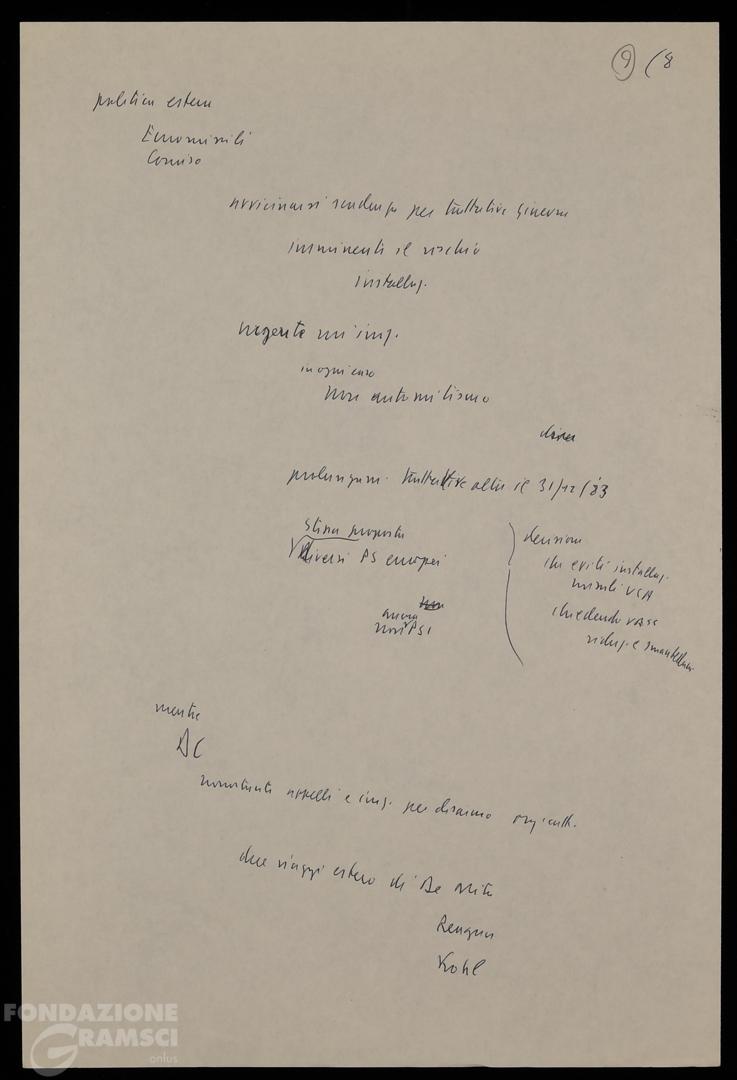 9 (8
politica estera
Euromissili
Comiso
avvicinarsi scadenza per trattative Ginevra
imminenti il rischio
installaz.
urgente un' imp.
in ogni caso
non automatismo
prolungam. trattative oltre il 31/12/83
stessa proposta
diversi PS europei
ancora
non PSI
decisione
che eviti installaz.
missili USA
chiedendo URSS
riduz. e smantellam.
mentre
DC
nonostante appelli e imp. per disarmo org. catt.
due viaggi estero di De Mita
Reagan
Kohl
FONDAZIONE
GRAMSCI
onlus